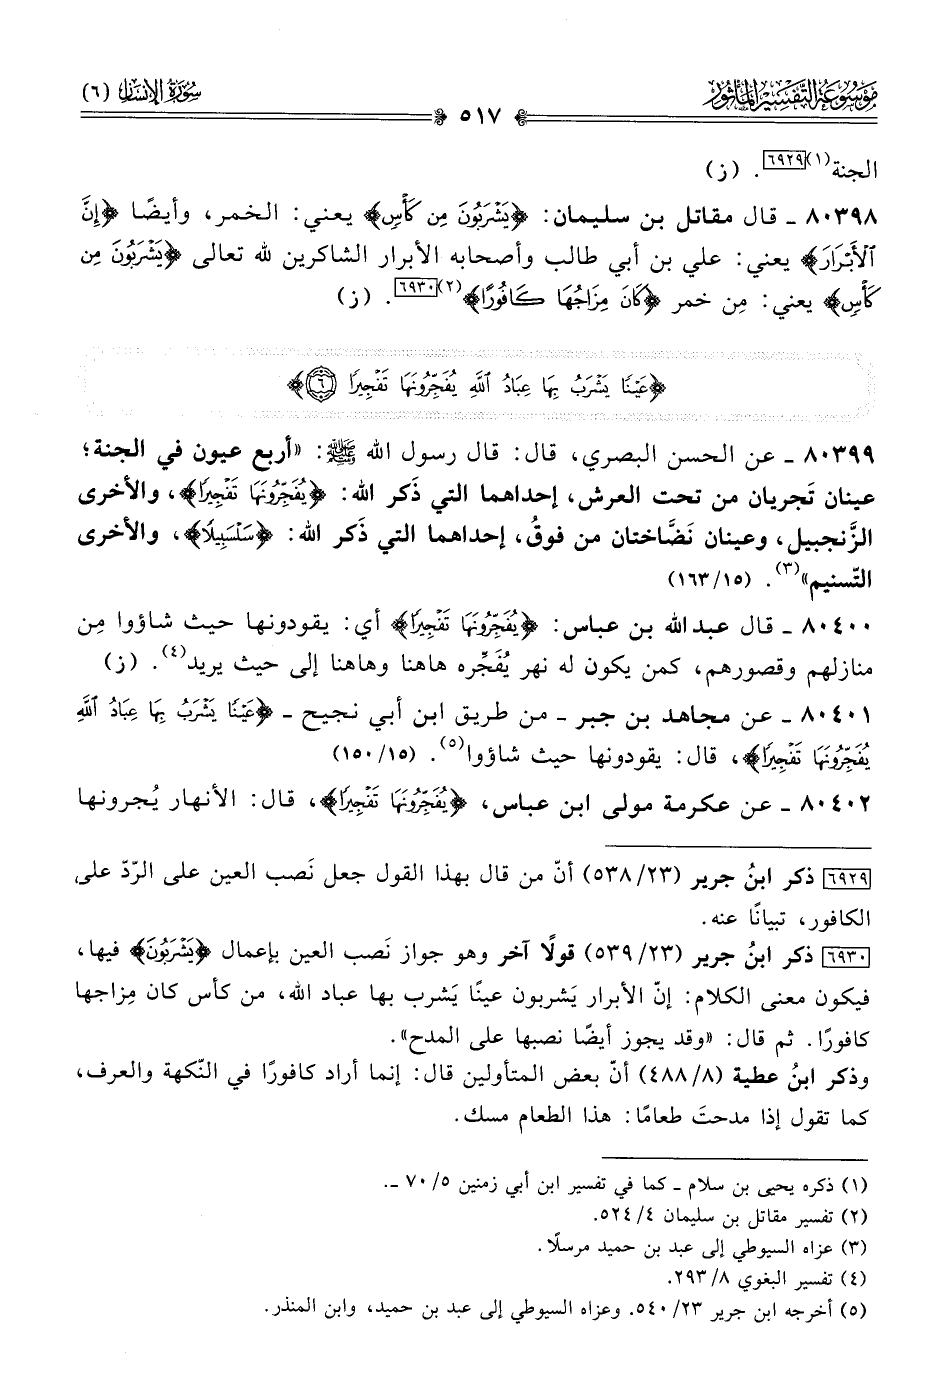 موسوعة التفسير المأثور
سورة الإنسان (٦)
٥١٧
الجنة(١)[٦٩٢٩]. (ز)
٨٠٣٩٨ ـ قال مقاتل بن سليمان: ﴿يَشْرَبُونَ مِن كَأْسٍ﴾ يعني: الخمر، وأيضًا ﴿إِنَّ
ٱلْأَبْرَارَ﴾ يعني: علي بن أبي طالب وأصحابه الأبرار الشاكرين لله تعالى ﴿يَشْرَبُونَ مِن
كَأْسٍ﴾ يعني: مِن خمر ﴿كَانَ مِزَاجُهَا كَافُورًا﴾(٢)[٦٩٣٠]. (ز)
﴿عَيْنًا يَشْرَبُ بِهَا عِبَادُ ٱللَّهِ يُفَجِّرُونَهَا تَفْجِيرًا ٦﴾
٨٠٣٩٩ ـ عن الحسن البصري، قال: قال رسول الله ﷺ: «أربع عيون في الجنة؛
عينان تَجريان من تحت العرش، إحداهما التي ذَكر الله: ﴿يُفَجِّرُونَهَا تَفْجِيرًا﴾، والأخرى
الزَّنجبيل، وعينان نَضَّاختان من فوقُ، إحداهما التي ذَكر الله: ﴿سَلْسَبِيلًا﴾، والأخرى
التّسنيم»(٣). (١٥/ ١٦٣)
٨٠٤٠٠ ـ قال عبد الله بن عباس: ﴿يُفَجِّرُونَهَا تَفْجِيرًا﴾ أي: يقودونها حيث شاؤوا مِن
منازلهم وقصورهم، كمن يكون له نهر يُفَجِّره هاهنا وهاهنا إلى حيث يريد(٤). (ز)
٨٠٤٠١ ـ عن مجاهد بن جبر ـ من طريق ابن أبي نجيح ـ ﴿عَيْنًا يَشْرَبُ بِهَا عِبَادُ ٱللَّهِ
يُفَجِّرُونَهَا تَفْجِيرًا﴾، قال: يقودونها حيث شاؤوا(٥). (١٥/ ١٥٠)
٨٠٤٠٢ ـ عن عكرمة مولى ابن عباس، ﴿يُفَجِّرُونَهَا تَفْجِيرًا﴾، قال: الأنهار يُجرونها
[٦٩٢٩] ذكر ابنُ جرير (٢٣/ ٥٣٨) أنّ من قال بهذا القول جعل نَصب العين على الرّدّ على
الكافور، تبيانًا عنه.
[٦٩٣٠] ذكر ابنُ جرير (٢٣/ ٥٣٩) قولًا آخر وهو جواز نَصب العين بإعمال ﴿يَشْرَبُونَ﴾ فيها،
فيكون معنى الكلام: إنّ الأبرار يَشربون عينًا يَشرب بها عباد الله، من كأس كان مِزاجها
كافورًا. ثم قال: «وقد يجوز أيضًا نصبها على المدح».
وذكر ابنُ عطية (٨/ ٤٨٨) أنّ بعض المتأولين قال: إنما أراد كافورًا في النّكهة والعرف،
كما تقول إذا مدحتَ طعامًا: هذا الطعام مسك.
(١) ذكره يحيى بن سلام ـ كما في تفسير ابن أبي زمنين ٥/ ٧٠ ـ.
(٢) تفسير مقاتل بن سليمان ٤/ ٥٢٤.
(٣) عزاه السيوطي إلى عبد بن حميد مرسلًا.
(٤) تفسير البغوي ٨/ ٢٩٣.
(٥) أخرجه ابن جرير ٢٣/ ٥٤٠. وعزاه السيوطي إلى عبد بن حميد، وابن المنذر.